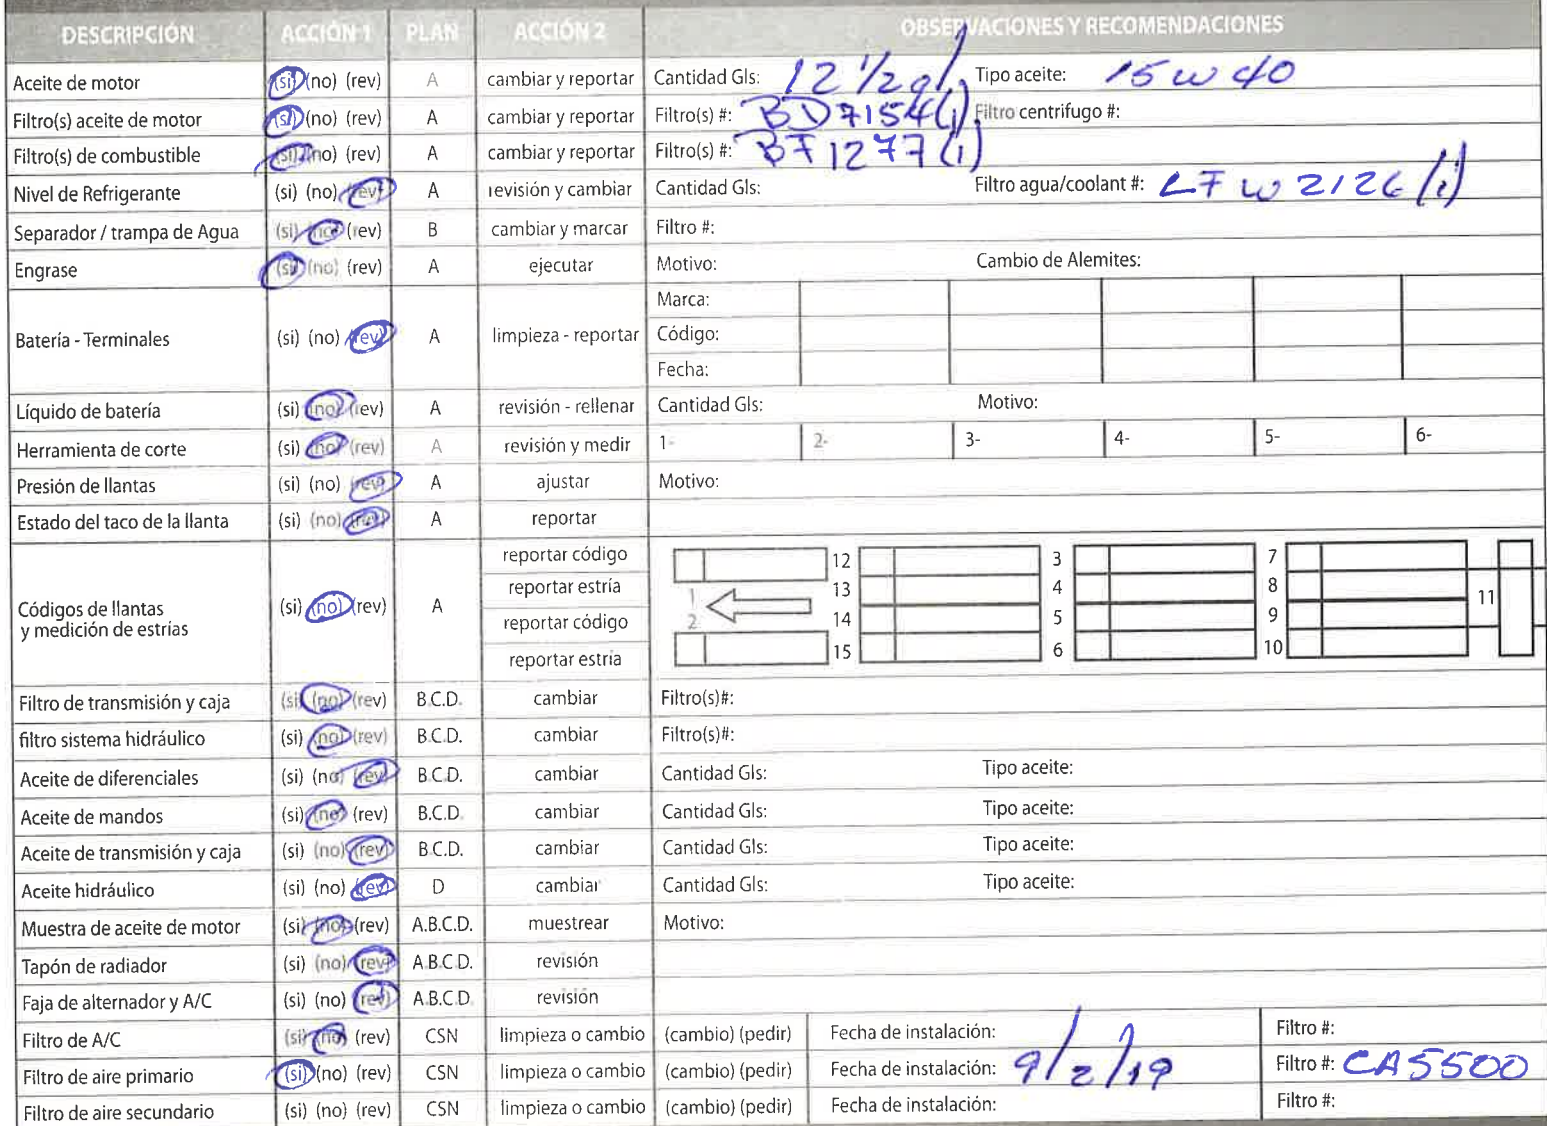 DESCRIPCIÓN ACCIÓN 1 PLAN ACCIÓN 2 OBSERVACIONES Y RECOMENDACIONES
Aceite de motor (si) (no) (rev) A cambiar y reportar Cantidad Gls: 12 1/2 gl. Tipo aceite: 15 W 40
Filtro(s) aceite de motor (si) (no) (rev) A cambiar y reportar Filtro(s) #: BD7154(1) Filtro centrifugo #:
Filtro(s) de combustible (si) (no) (rev) A cambiar y reportar Filtro(s) #: BF1277(1)
Nivel de Refrigerante (si) (no) (rev) A revisión y cambiar Cantidad Gls: Filtro agua/coolant #: LFW2126(1)
Separador / trampa de Agua (si) (no) (rev) B cambiar y marcar Filtro #:
Engrase (si) (no) (rev) A ejecutar Motivo: Cambio de Alemites:
Batería - Terminales (si) (no) (rev) A limpieza - reportar Marca:
Código:
Fecha:
Líquido de batería (si) (no) (rev) A revisión - rellenar Cantidad Gls: Motivo:
Herramienta de corte (si) (no) (rev) A revisión y medir 1- 2- 3- 4- 5- 6-
Presión de llantas (si) (no) (rev) A ajustar Motivo:
Estado del taco de la llanta (si) (no) (rev) A reportar
Códigos de llantas y medición de estrías (si) (no) (rev) A reportar código 12 3 7
reportar estría 1 13 4 8 11
reportar código 2 14 5 9
reportar estria 15 6 10
Filtro de transmisión y caja (si) (no) (rev) B.C.D. cambiar Filtro(s)#:
filtro sistema hidráulico (si) (no) (rev) B.C.D. cambiar Filtro(s)#:
Aceite de diferenciales (si) (no) (rev) B.C.D. cambiar Cantidad Gls: Tipo aceite:
Aceite de mandos (si) (no) (rev) B.C.D. cambiar Cantidad Gls: Tipo aceite:
Aceite de transmisión y caja (si) (no) (rev) B.C.D. cambiar Cantidad Gls: Tipo aceite:
Aceite hidráulico (si) (no) (rev) D cambiar Cantidad Gls: Tipo aceite:
Muestra de aceite de motor (si) (no) (rev) A.B.C.D. muestrear Motivo:
Tapón de radiador (si) (no) (rev) A.B.C.D. revisión
Faja de alternador y A/C (si) (no) (rev) A.B.C.D. revisión
Filtro de A/C (si) (no) (rev) CSN limpieza o cambio (cambio) (pedir) Fecha de instalación: Filtro #:
Filtro de aire primario (si) (no) (rev) CSN limpieza o cambio (cambio) (pedir) Fecha de instalación: 9/2/19 Filtro #: CA5500
Filtro de aire secundario (si) (no) (rev) CSN limpieza o cambio (cambio) (pedir) Fecha de instalación: Filtro #: